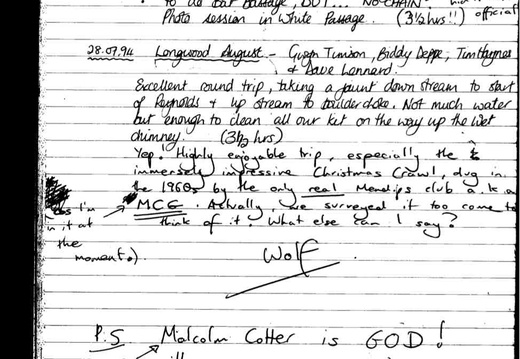 to do Bat Passage, BUT... NO CHAIN!
Photo session in White Passage. (3½hrs!!) official
28.07.94 Longwood August - Gwen Timson, Biddy Deppe, Tim Haynes
& Dave Lennard.
Excellent round trip, taking a jaunt down stream to start
of Reynolds & up stream to boulder choke. Not much water
but enough to clean all our kit on the way up the wet
chimney. (3½ hrs)
Yep! Highly enjoyable trip, especially the
immensely impressive Christmas Crawl, dug in
the 1960s by the only real Mendips club a.k.a
MCG. Actually, we surveyed it too come to
think of it. What else can I say?
(as I'm
in it at
the
moment).
Wolf
P.S Malcolm Cotter is GOD!